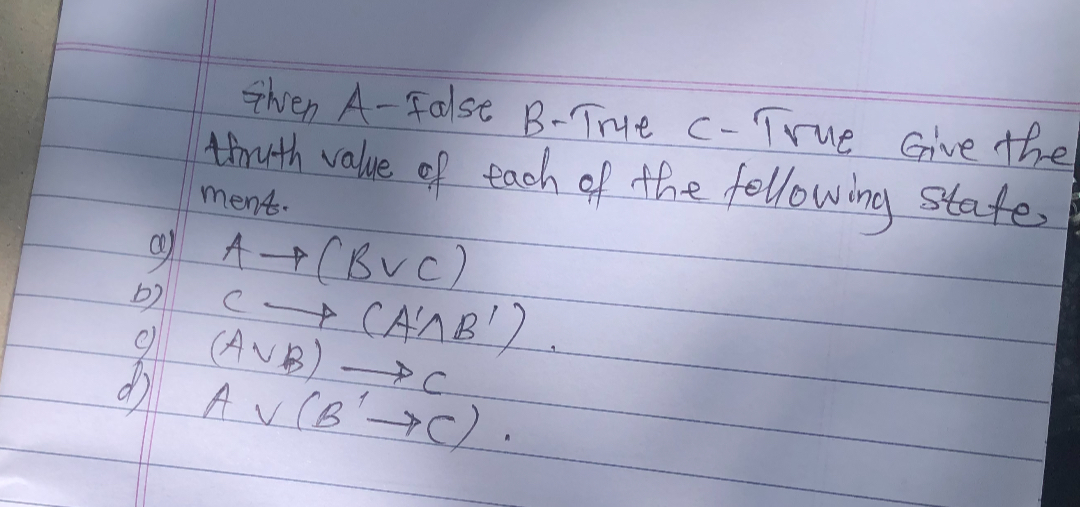 Given A - False B - True C - True Give the
truth value of each of the following state,
ment.
a) A → (B ∨ C)
b) C → (A' ∧ B').
c) (A ∨ B) → C
d) A ∨ (B' → C).